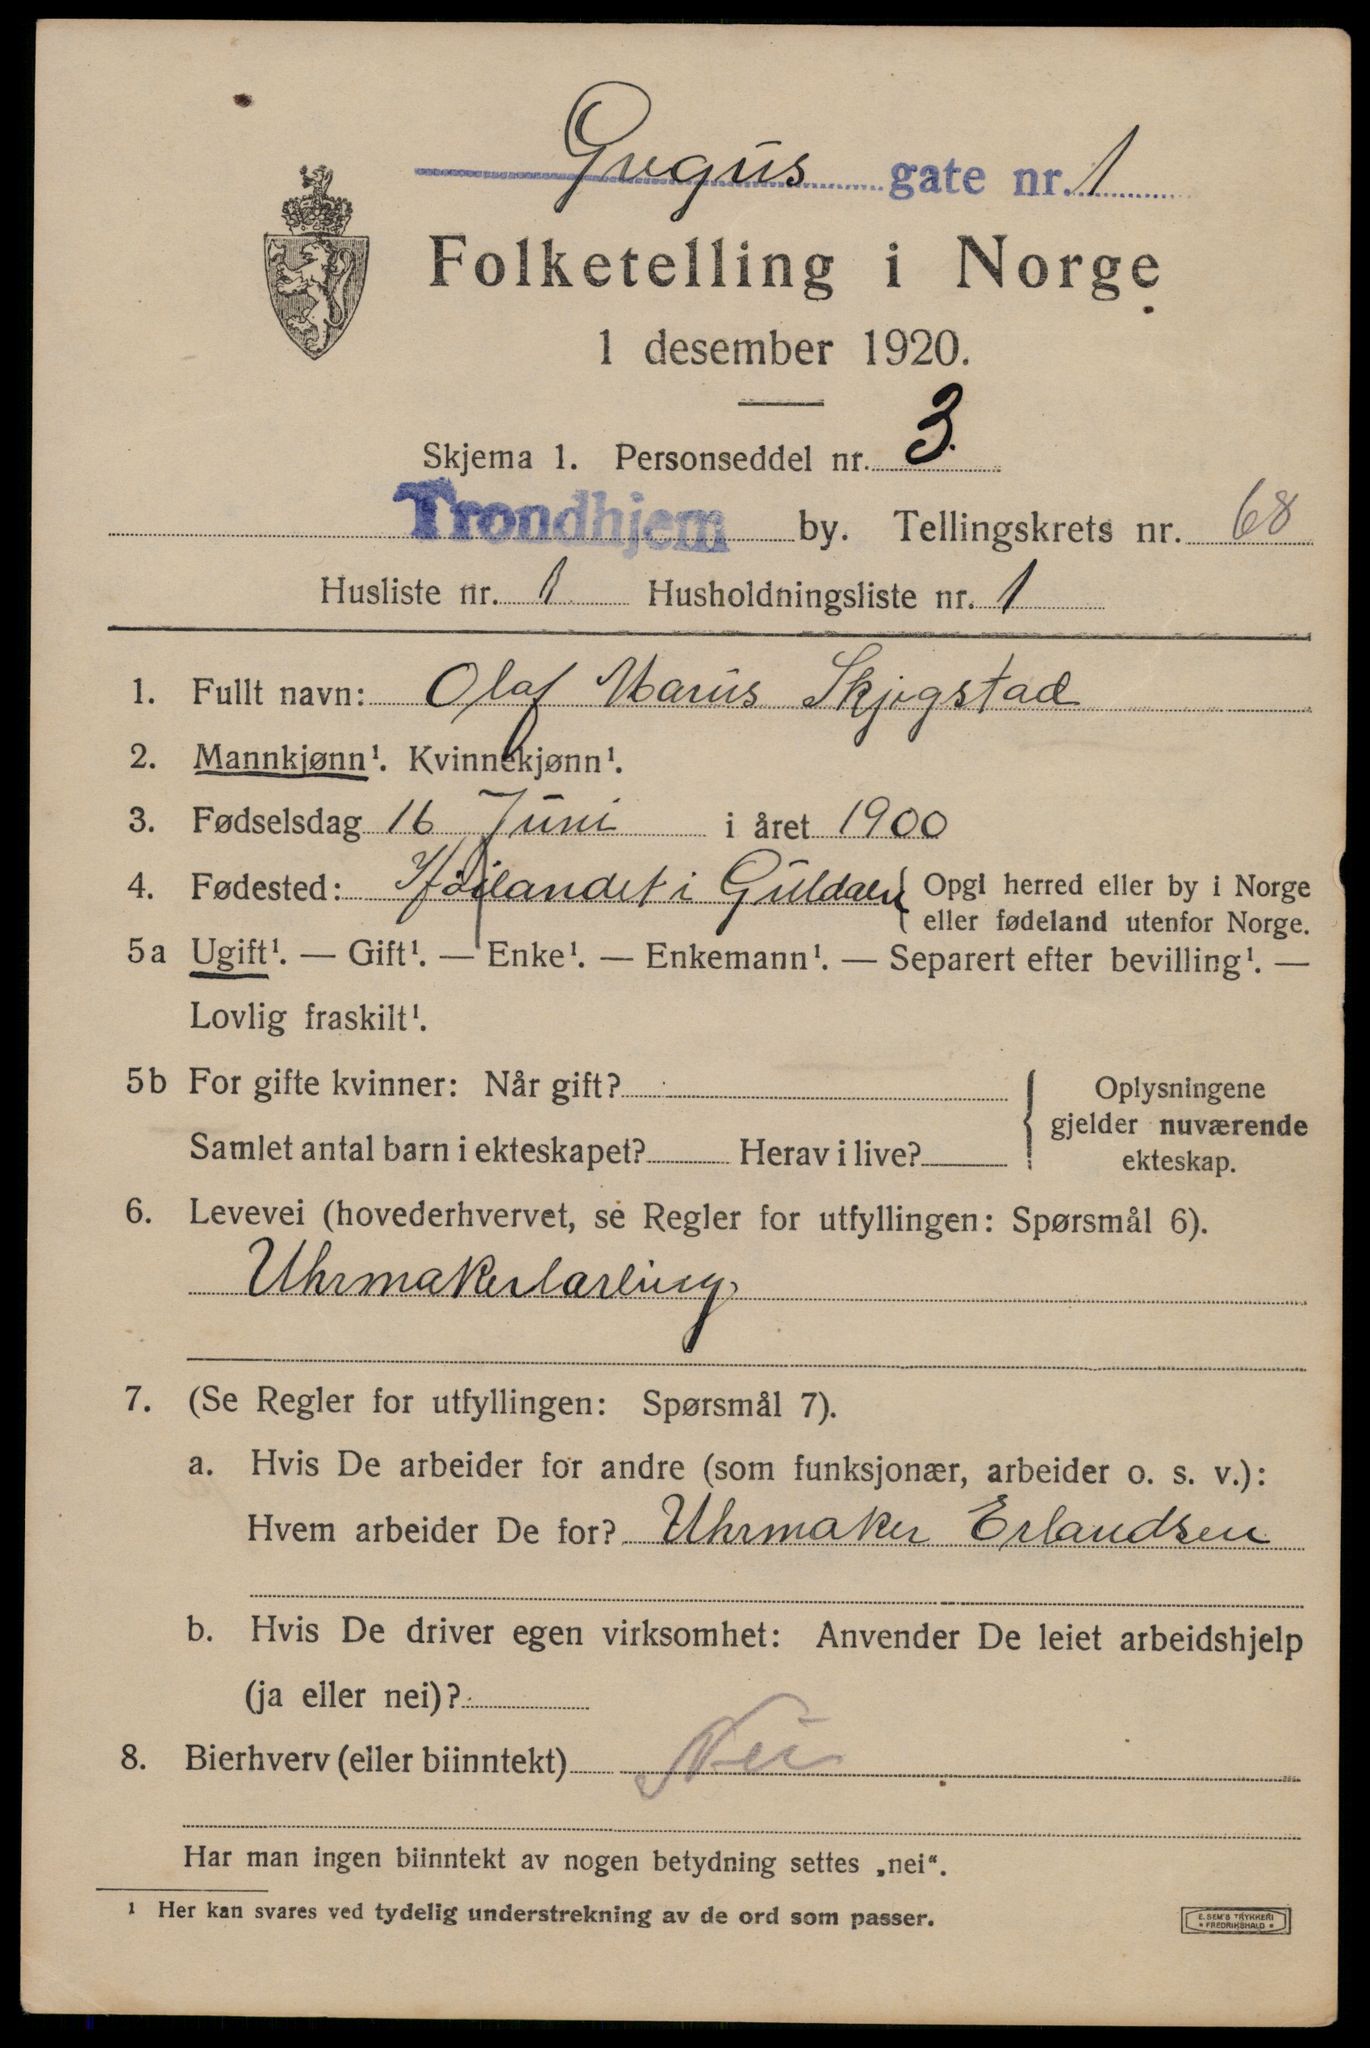 Gregus gate nr. 1
Folketelling i Norge
1 desember 1920.
Skjema 1. Personseddel nr. 3.
Trondhjem by. Tellingskrets nr. 68
Husliste nr. 1 Husholdningsliste nr. 1
1. Fullt navn: Olaf Marius Skjegstad
2. Mannkjønn¹. Kvinnekjønn¹.
3. Fødselsdag 16 Juni i året 1900
4. Fødested: Høilandet i Guldalen { Opgi herred eller by i Norge
eller fødeland utenfor Norge.
5a Ugift¹. — Gift¹. — Enke¹. — Enkemann¹. — Separert efter bevilling¹. —
Lovlig fraskilt¹.
5b For gifte kvinner: Når gift?
Samlet antal barn i ekteskapet? Herav i live?
Oplysningene
gjelder nuværende
ekteskap.
6. Levevei (hovederhvervet, se Regler for utfyllingen: Spørsmål 6).
Uhrmakerlærling
7. (Se Regler for utfyllingen: Spørsmål 7).
a. Hvis De arbeider for andre (som funksjonær, arbeider o. s. v.):
Hvem arbeider De for? Uhrmaker Erlandsen
b. Hvis De driver egen virksomhet: Anvender De leiet arbeidshjelp
(ja eller nei)?
8. Bierhverv (eller biinntekt) Nei
Har man ingen biinntekt av nogen betydning settes „nei“.
¹ Her kan svares ved tydelig understrekning av de ord som passer.
E. SEM'S TRYKKERI
* FREDRIKSHALD *